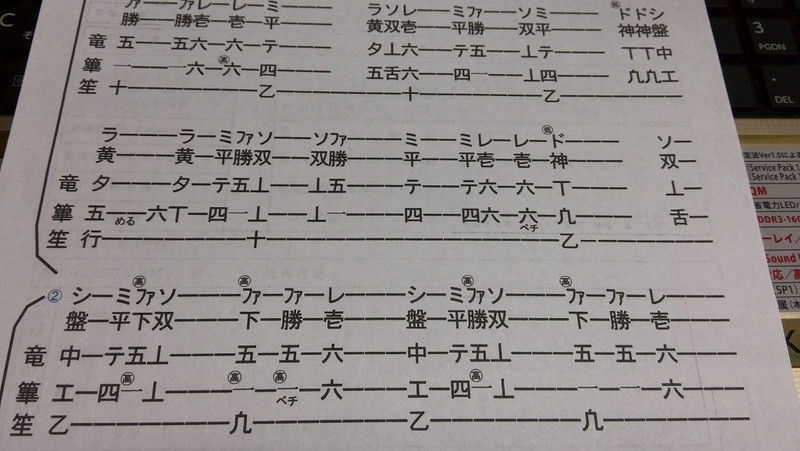 ファーーファレーレーミーー ラソレーーミファーーソミーー ㊤ドドシ
勝ーー勝壱ー壱ー平ーー 黄双壱ーー平勝ーー双平ーー 神神盤
竜 五ーー五六ー六ーテーー 夕⊥六ーーテ五ーー⊥テーー 丁丁中
篳 一ーー一六ー六ー四ーー 五舌六ーー四一ーー⊥四ーー 九九工
笙 十ーーーーー乙ーーーーー十ーーーーー乙ーーーーー
ラーーーラーミファソーーソファーーーミーーミレーレード ソー
黄ーーー黄ー平勝双ーー双勝ーーー平ーー平壱ー壱ー神 双ー
竜 夕ーーー夕ーテ五⊥ーー⊥五ーーーテーーテ六ー六ー丁 ⊥ー
篳 五ーめるー六丁ー四一⊥ーー⊥ーーーー四ーー四六ー六ー九 舌ー
ベチ
笙 行ーーーーーーー十ーーーーーーーーーーーーーー乙ーーーーー
② シーミファソーーーファーファーレーーー シーミファソーーーファーファーレーー
盤ー平下双ーーー下ー勝ー壱ーーー 盤ー平勝双ーーー下ー勝ー壱ーー
竜 中ーテ五⊥ーーー五ー五ー六ーーー 中ーテ五⊥ーーー五ー五ー六ーー
篳 工ー四一⊥ーーー一ー一ー六ーーー 工ー四一⊥ーーー一ー一ー六ーー
ベチ
笙 乙ーーーーーーー九ーーーーーーー乙ーーーーーーー九ーーーーーー
C
そ
3
PGDN
.
DEL
定法Ver1.0によ
Service Pack 1
Service Pack
QM
省電力LED
DDR3-160
ーレイ/
Sound
対応/高
(SP1)
K